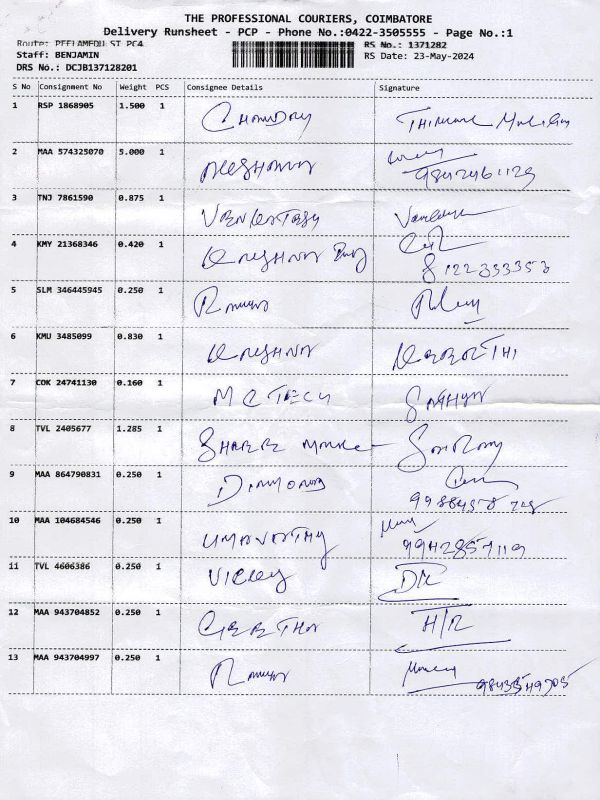 THE PROFESSIONAL COURIERS, COIMBATORE
Delivery Runsheet - PCP - Phone No.:0422-3505555 - Page No.:1
Route: PEELAMEDU ST PC4 RS No.: 1371282
Staff: BENJAMIN RS Date: 23-May-2024
DRS No.: DCJB137128201
S No Consignment No Weight PCS Consignee Details Signature
1 RSP 1868905 1.500 1 CHOWDRY
2 MAA 574325070 5.000 1
3 TNJ 7861590 0.875 1 VENKATESH
4 KMY 21368346 0.420 1 KRISHNA
8122333353
5 SLM 346445945 0.250 1
6 KMU 3485099 0.830 1 KRISHNA
7 COK 24741130 0.160 1 MC TECH SATHYA
8 TVL 2405677 1.285 1 SHARE
9 MAA 864790831 0.250 1
10 MAA 104684546 0.250 1 UMAVATHY
9942857119
11 TVL 4606386 0.250 1 VICKY DR
12 MAA 943704852 0.250 1 GEETHA H/R
13 MAA 943704997 0.250 1